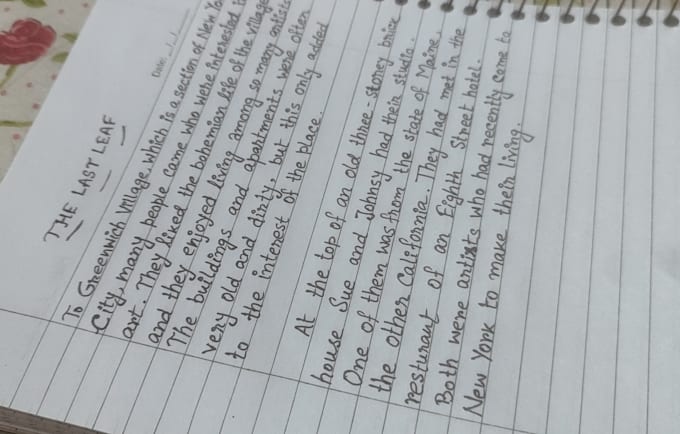 Date:
THE LAST LEAF
To Greenwich Village, which is a section of New
City, many people came who were interested
art. They liked the bohemian life of the village
and they enjoyed living among so many artists
The buildings and apartments were often
very old and dirty, but this only added
to the interest of the place.
At the top of an old three-storey brick
house Sue and Johnsy had their studio.
One of them was from the state of Maine,
the other California. They had met in the
resturant of an Eighth Street hotel.
Both were artists who had recently come to
New York to make their living.